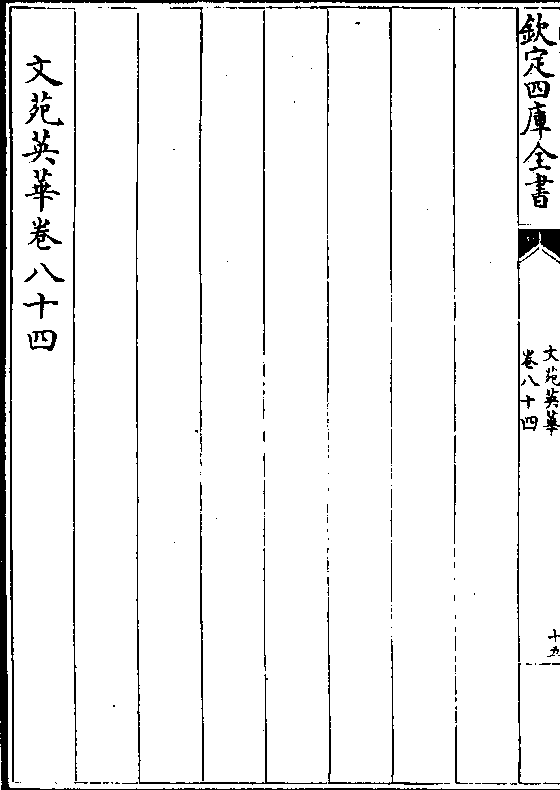 欽定四庫全書
文苑英華
卷八十四
十九
文苑英華卷八十四